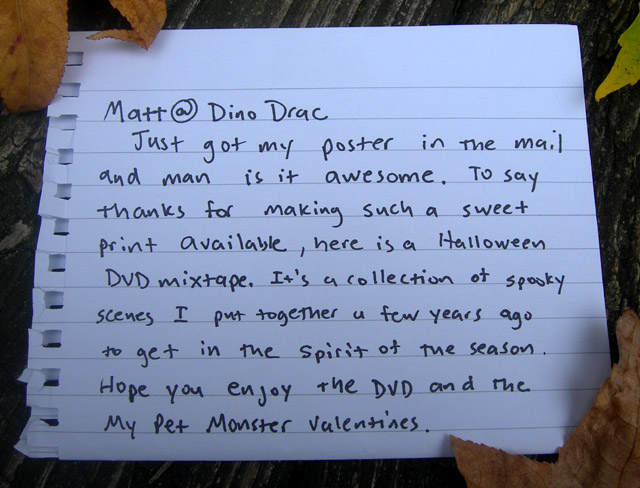 Matt @ Dino Drac
Just got my poster in the mail
and man is it awesome. To say
thanks for making such a sweet
print available, here is a Halloween
DVD mixtape. It's a collection of spooky
scenes I put together a few years ago
to get in the spirit of the season.
Hope you enjoy the DVD and the
My Pet Monster Valentines.